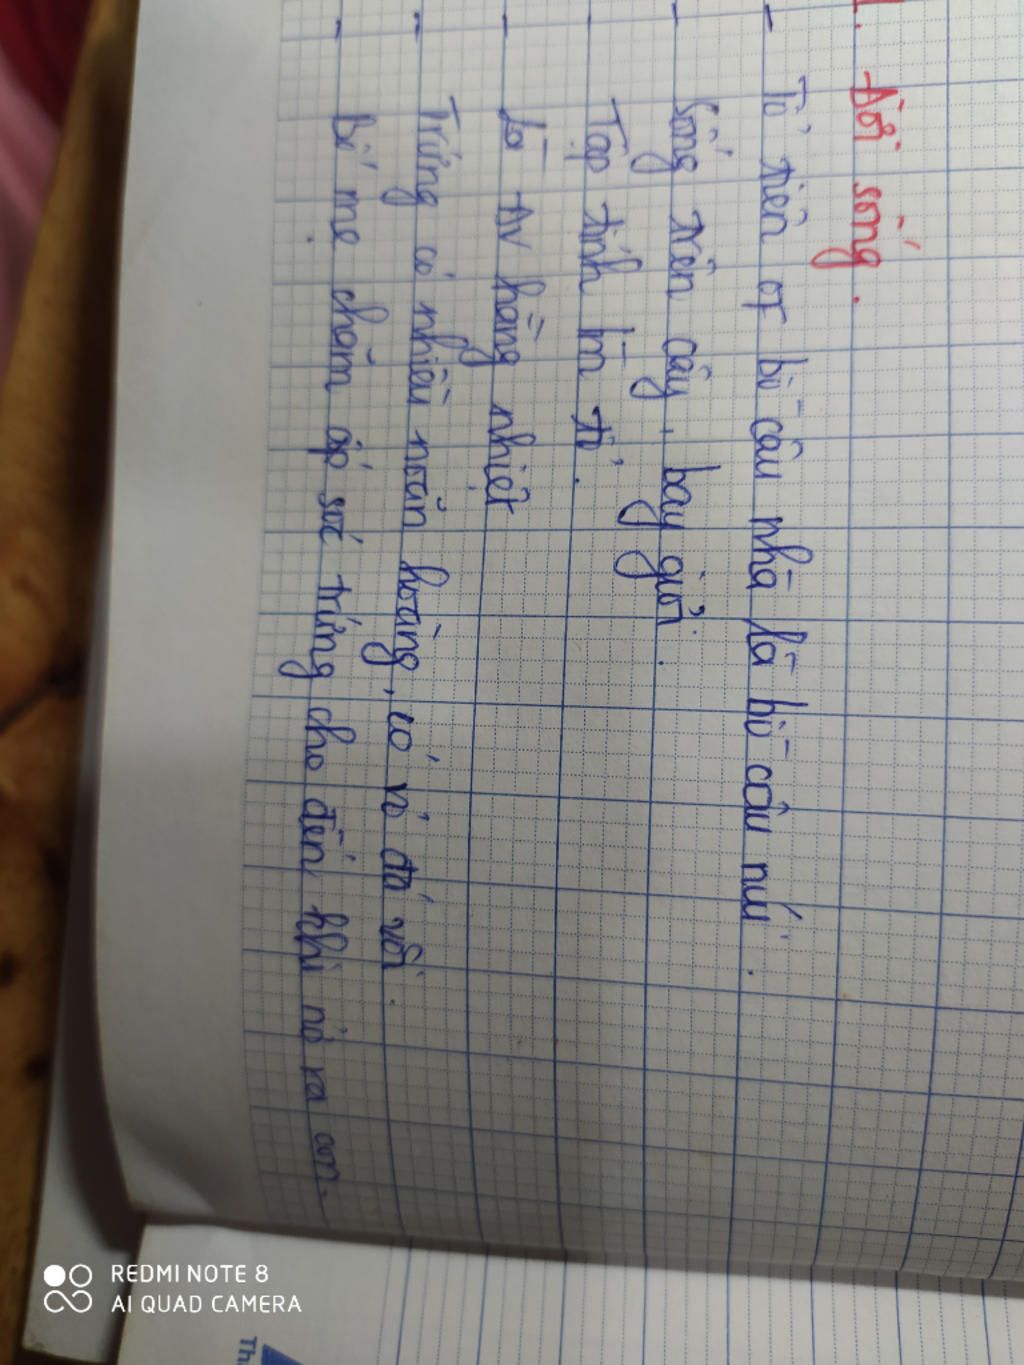 1. Đời sống.
- Tổ tiên of bồ câu nhà là bồ câu núi.
- Sống trên cây, bay giỏi.
- Tập tính làm tổ.
- Là ĐV hằng nhiệt
- Trứng có nhiều noãn hoàng, có vỏ đá vôi.
- Bố mẹ chăm ấp sức trứng cho đến khi nở ra con.
REDMI NOTE 8
AI QUAD CAMERA